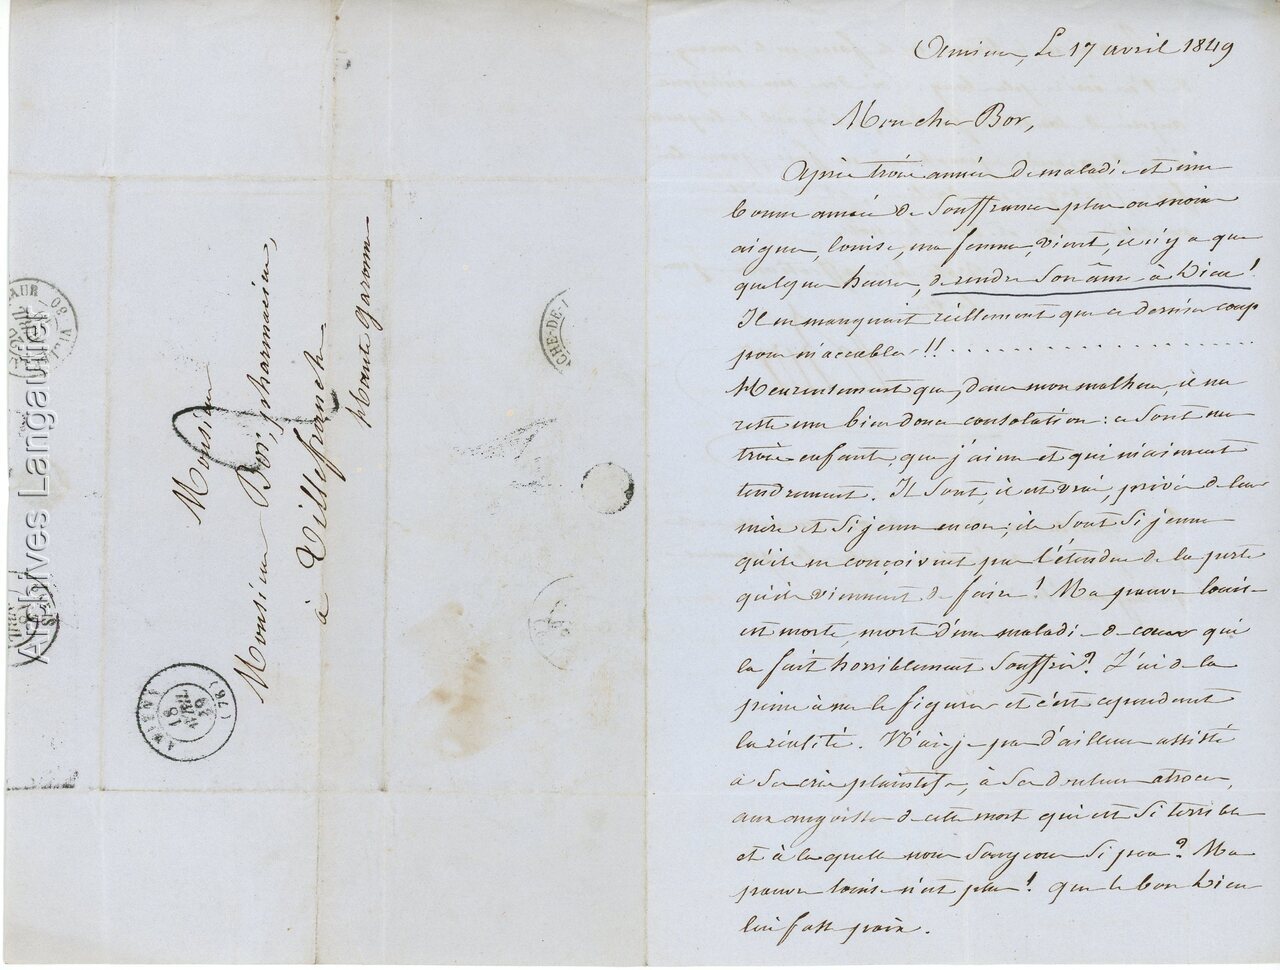 Monsieur
Monsieur Bor, pharmacien,
à Villefranche
Haute garonne
AMIENS
18
AVRIL
49
(76)
CHE-DE-L
Archives Langautier
Amiens, Le 17 avril 1849
Mon cher Bor,
Après trois années de maladie et une
bonne année de souffrances plus ou moins
aigues, louise, ma femme, vient, il n'y a que
quelques heures, de rendre son âme à Dieu!
Il ne manquait réellement que ce dernier coup
pour m'accabler!! . . . . . . . . . . . . . . . . . .
Heureusement que, dans mon malheur, il me
reste une bien douce consolation: ce sont mes
trois enfants, que j'aime et qui m'aiment
tendrement. Il sont, il est vrai, privés de leur
mère et si jeunes encore; ils sont si jeunes
qu'ils ne conçoivent pas l'étendue de la perte
qu'ils viennent de faire! Ma pauvre louise
est morte morte d'une maladie de coeur qui
la fait horriblement souffrir? J'ai de la
peine à me le figurer et c'est cependant
la réalité. N'ai-je pas d'ailleurs assisté
à ses cris plaintifs, à ses douleurs atroces,
aux angoisses de cette mort qui est si terrible
et à laquelle nous songeons si peu? Ma
pauvre louise n'est plus! que le bon Dieu
lui fasse paix.